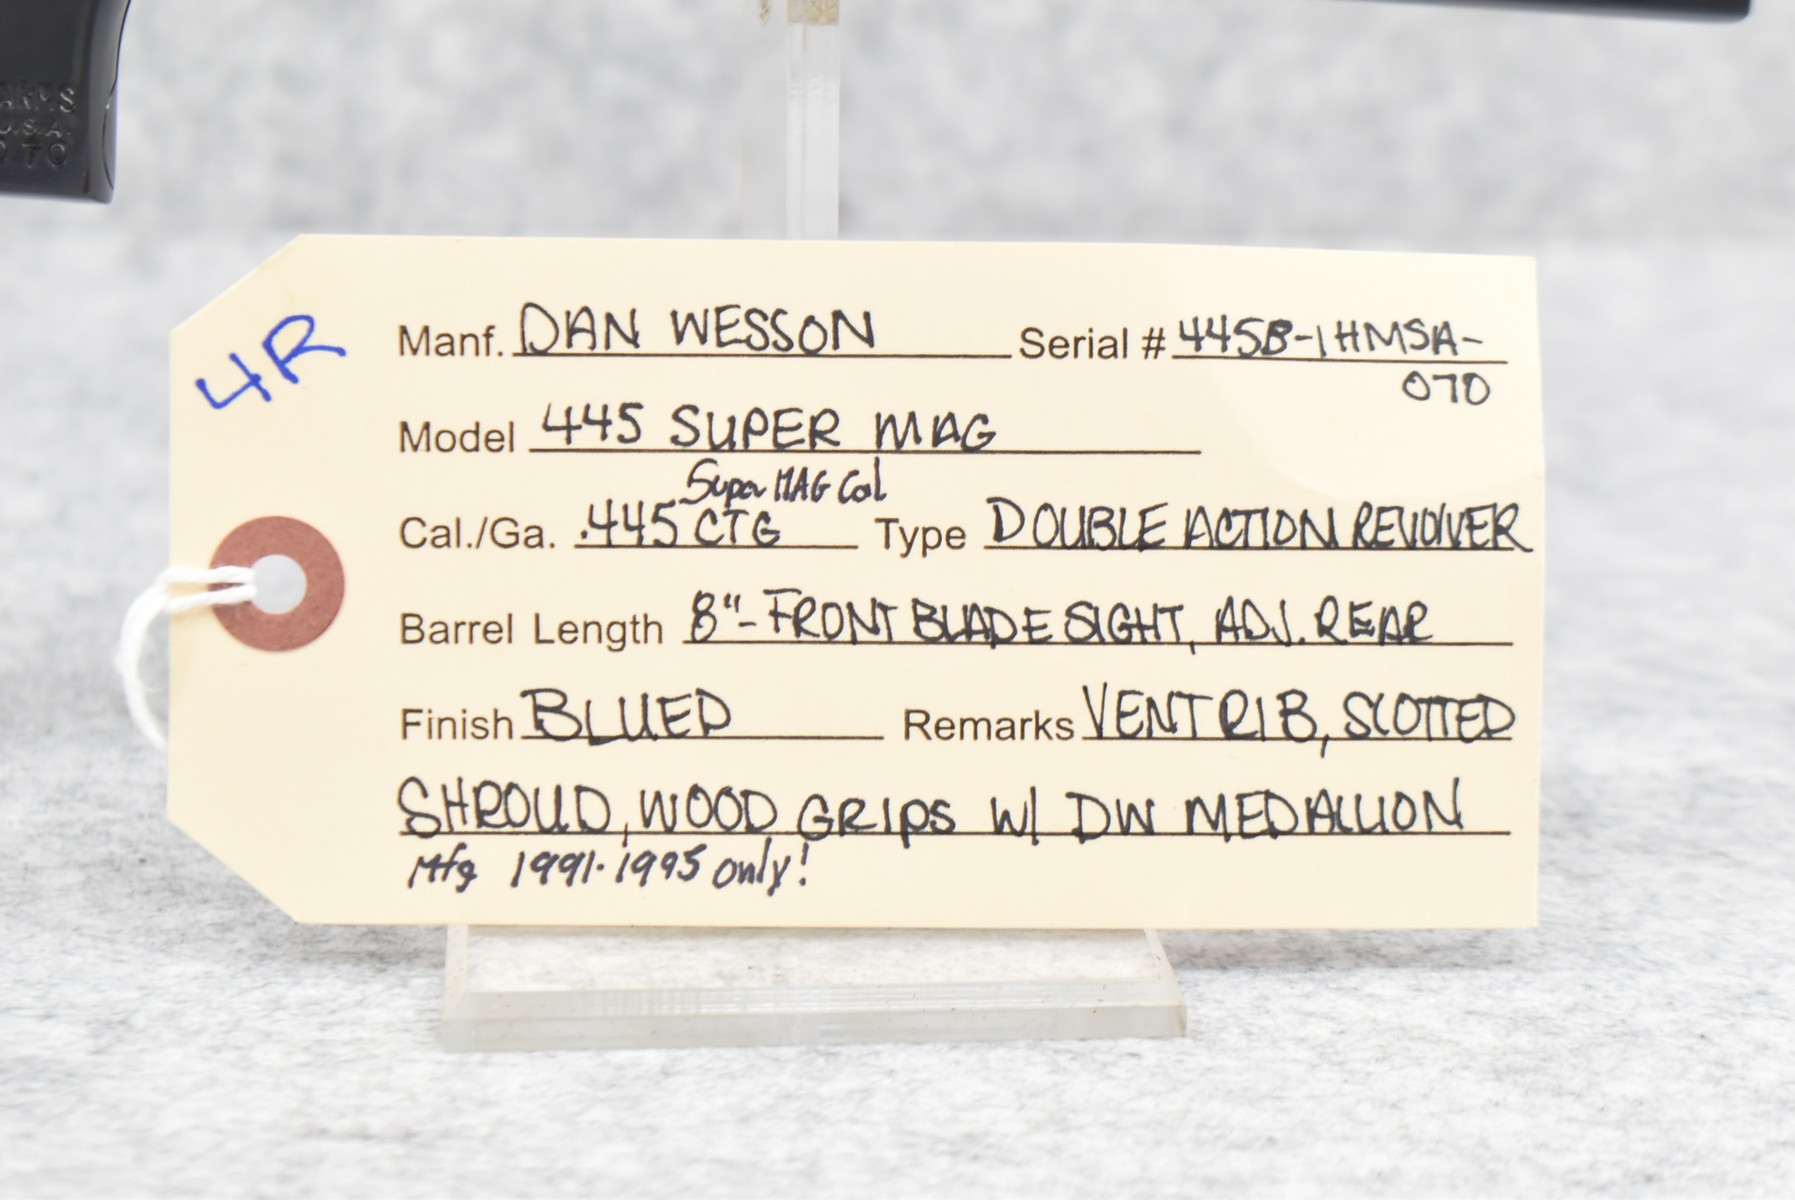 ARMS
U.S.A.
070
4R
Manf. DAN WESSON Serial # 445B-1HMSA-
070
Model 445 SUPER MAG
Super MAG Cal
Cal./Ga. .445 CTG Type DOUBLE ACTION REVOLVER
Barrel Length 8"-FRONT BLADE SIGHT, ADJ. REAR
Finish BLUED Remarks VENT RIB, SLOTTED
SHROUD, WOOD GRIPS W/ DW MEDALLION
Mfg 1991-1995 only!